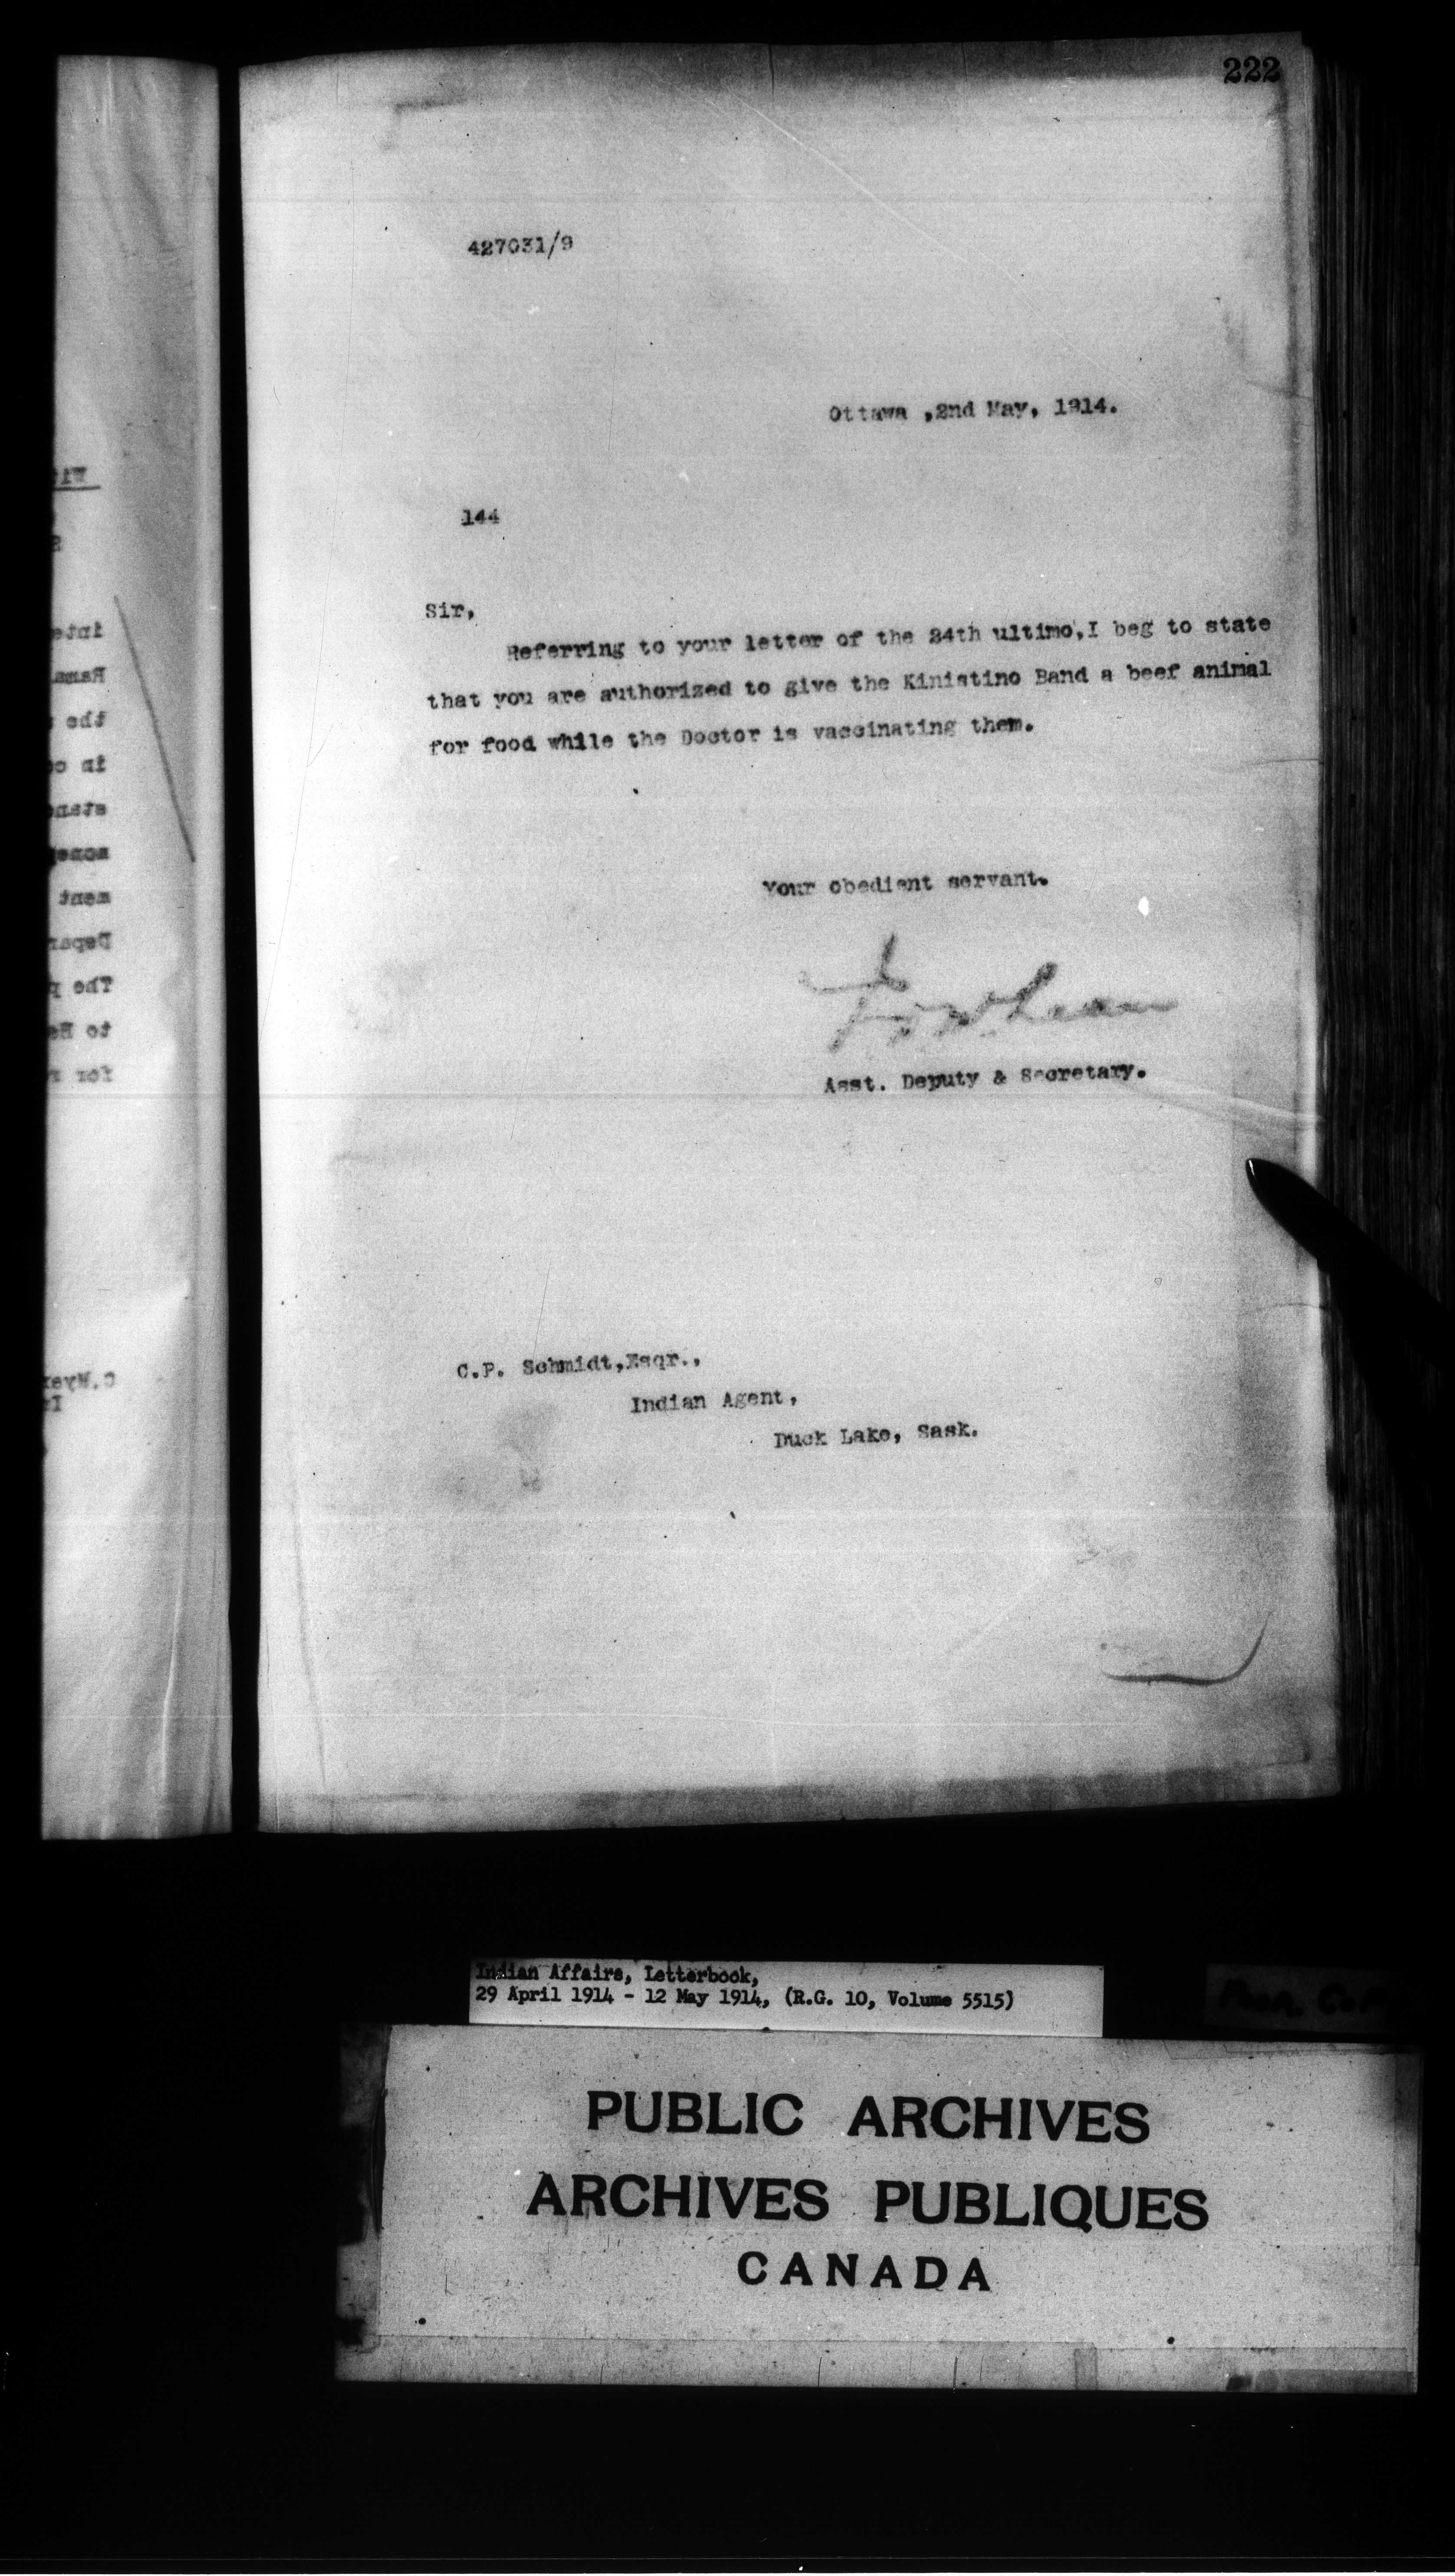 222
427031/9
Ottawa ,2nd May, 1914.
144
Sir,
Referring to your letter of the 24th ultimo,I beg to state
that you are authorized to give the Kinistino Band a beef animal
for food while the Doctor is vaccinating them.
Your obedient servant.
Asst. Deputy & Secretary.
C.P. Schmidt,Esqr.,
Indian Agent,
Duck Lake, Sask.
Indian Affairs, Letterbook,
29 April 1914 - 12 May 1914, (R.G. 10, Volume 5515)
PUBLIC ARCHIVES
ARCHIVES PUBLIQUES
CANADA